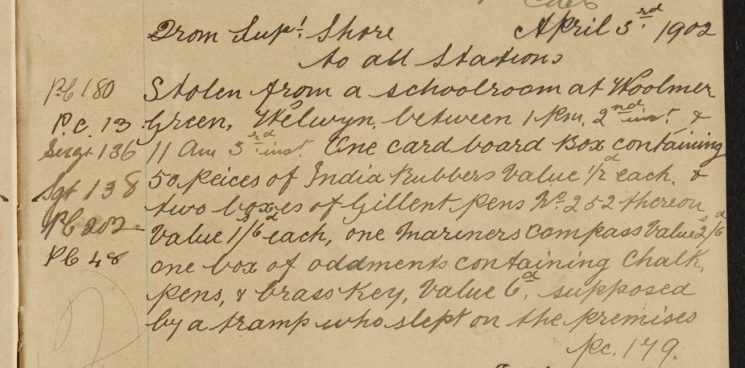 From Supt. Shore April 3rd 1902
to all Stations
PC 180 Stolen from a schoolroom at Woolmer
P.C. 13 Green, Welwyn, between 1 P.m. 2nd inst. &
Sergt 136 11 Am 3rd inst. One card board Box containing
Sgt 138 50 peices of India Rubbers Value 1/2d each, &
PC 202 two boxes of Gillent pens No. 252 thereon
Value 1s/6d each, one Mariners Compass Value 2s/6d
PC 48 one box of oddments containing Chalk,
pens, & brass Key, Value 6d, supposed
by a tramp who slept on the premises
pc. 179.